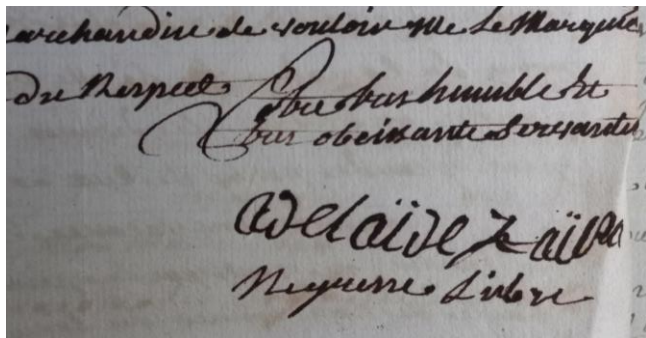 marchandise de vouloir me Le Marquer
du Respect
vôtre tres humble Et
tres obeissante Servante
adelaïde Zaïre
Negresse Libre